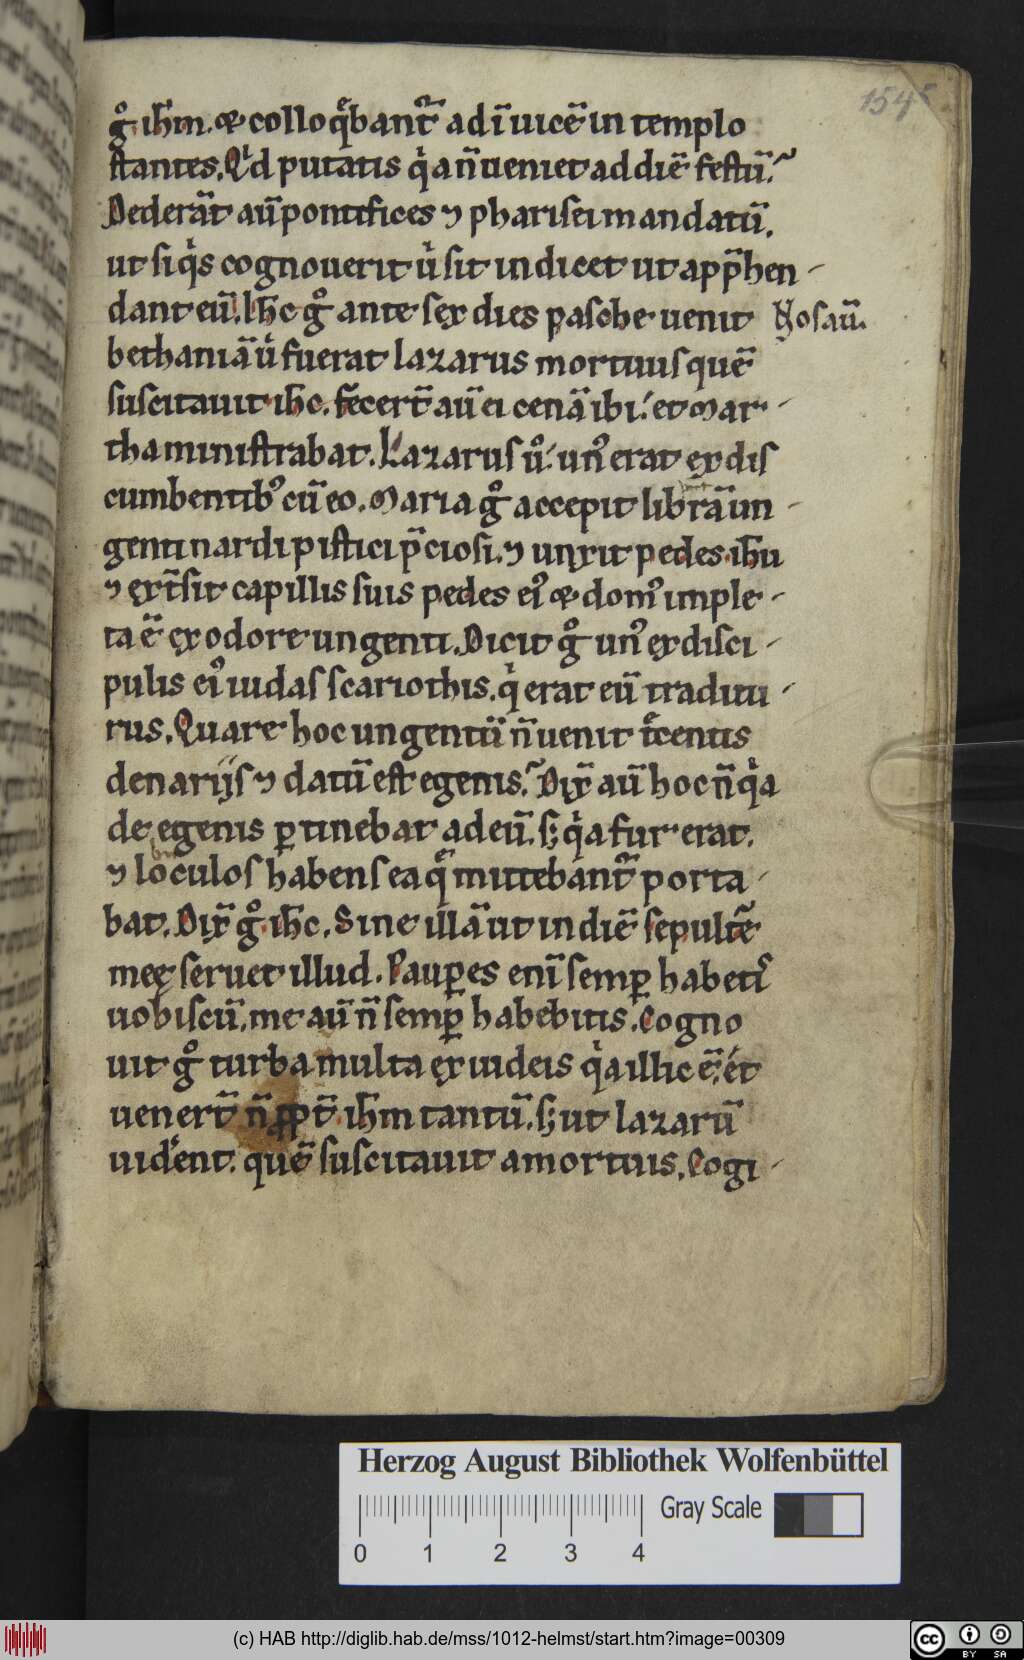 154
gͦ. ihm̄. & colloq̄bantᷣ ad ī uicē in templo
stantes. Qͥd putatis qͥa n̄ ueniet ad diē festū.
Dederāt aū pontifices ⁊ pharisei mandatū.
ut si qͥs cognouerit uͥ sit indicet ut app̄hen-
dant eū. Ihc̄ gͦ ante sex dies pasche uenit
bethaniā uͥ fuerat lazarus mortuus quē
suscitauit ihc̄. fēcert̄ aū ei cenā ibi. et Mar-
tha ministrabat. Lazarus uͦ. unꝰ erat ex dis
cumbentibꝰ cū eo. Maria gͦ accepit librā un-
genti nardi pistici p̄ciosi. ⁊ unxit pedes ihu
⁊ ext̄sit capillis suis pedes eiꝰ & domꝰ imple-
ta ē ex odore ungenti. Dicit gͦ unꝰ ex disci-
pulis eiꝰ iudas scariothis. qͥ erat eū traditu-
rus. Quare hoc ungentū n̄ uenit tͨcentis
denariis ⁊ datū est egenis. Dix̄ aū hoc n̄ qͥa
de egenis ꝑtinebat ad eū. sꝫ qͥa fur erat.
⁊ loculos habens ea q̄ mittebantᷣ porta-
bat. Dix̄ gͦ. ihc̄. Sine illā ut in diē sepultᷣē
meę seruet illud. Pauꝑes enī semꝑ habetis
uobiscū. me aū n̄ semꝑ habebitis. Cogno
uit gͦ turba multa ex iudeis qͥa illic ē. et
uenert̄ n̄ ꝓpt̄ ihm̄ tantū. sꝫ ut lazarū
uid̄ent. quē suscitauit a mortuis. Cogi-
Herzog August Bibliothek Wolfenbüttel
Gray Scale
0 1 2 3 4
(c) HAB http://diglib.hab.de/mss/1012-helmst/start.htm?image=00309
cc BY SA